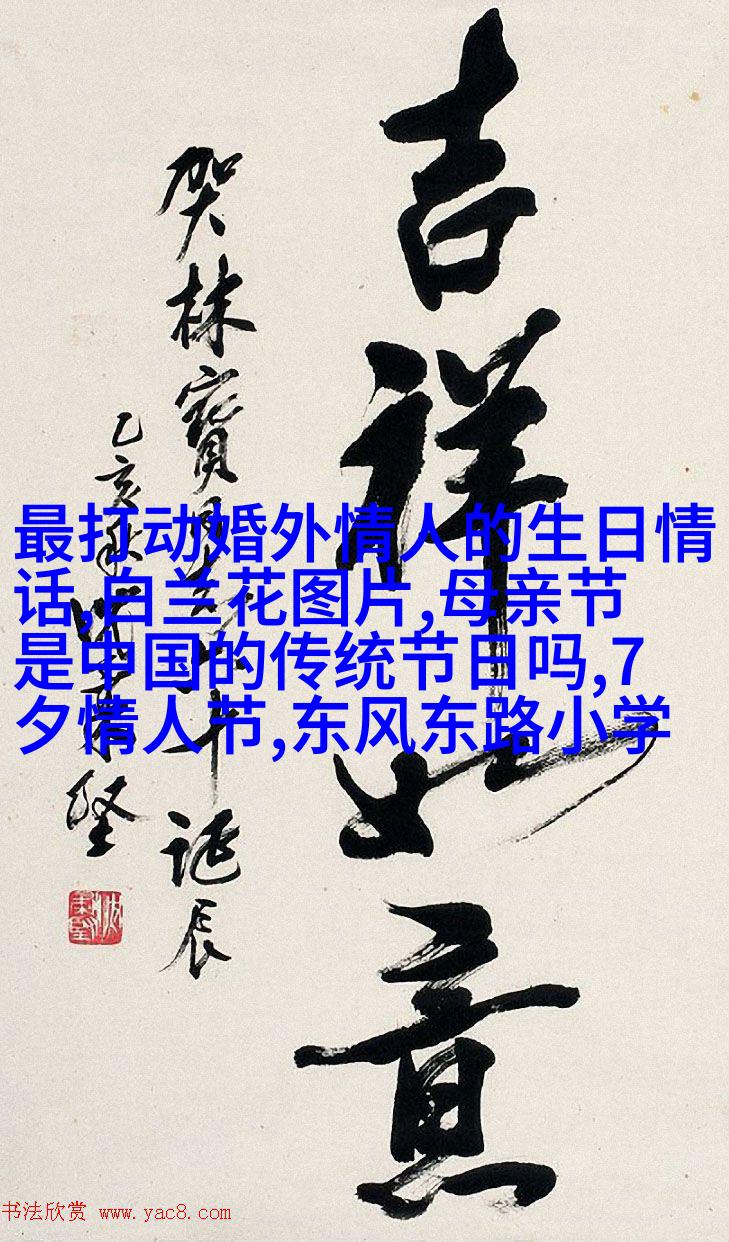 吉祥如意
贺林寶
诞辰
乙亥
坚
最打动婚外情人的生日情
话,白兰花图片,母亲节
是中国的传统节日吗,7
夕情人节,东风东路小学
书法欣赏 www.yac8.com